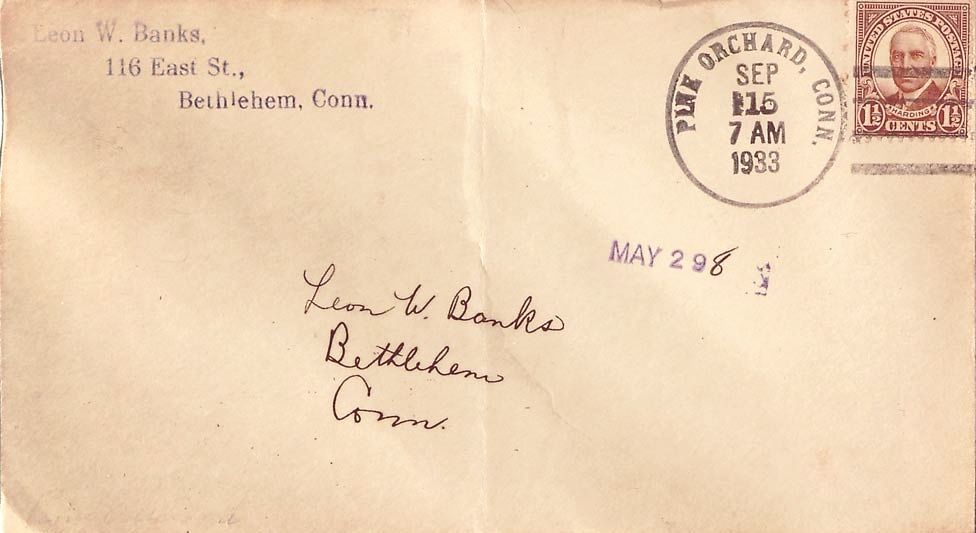 Leon W. Banks,
116 East St.,
Bethlehem, Conn.
PINE ORCHARD, CONN.
SEP
15
7 AM
1933
UNITED STATES POSTAGE
HARDING
1½ CENTS 1½
MAY 298
Leon W. Banks
Bethlehem
Conn.